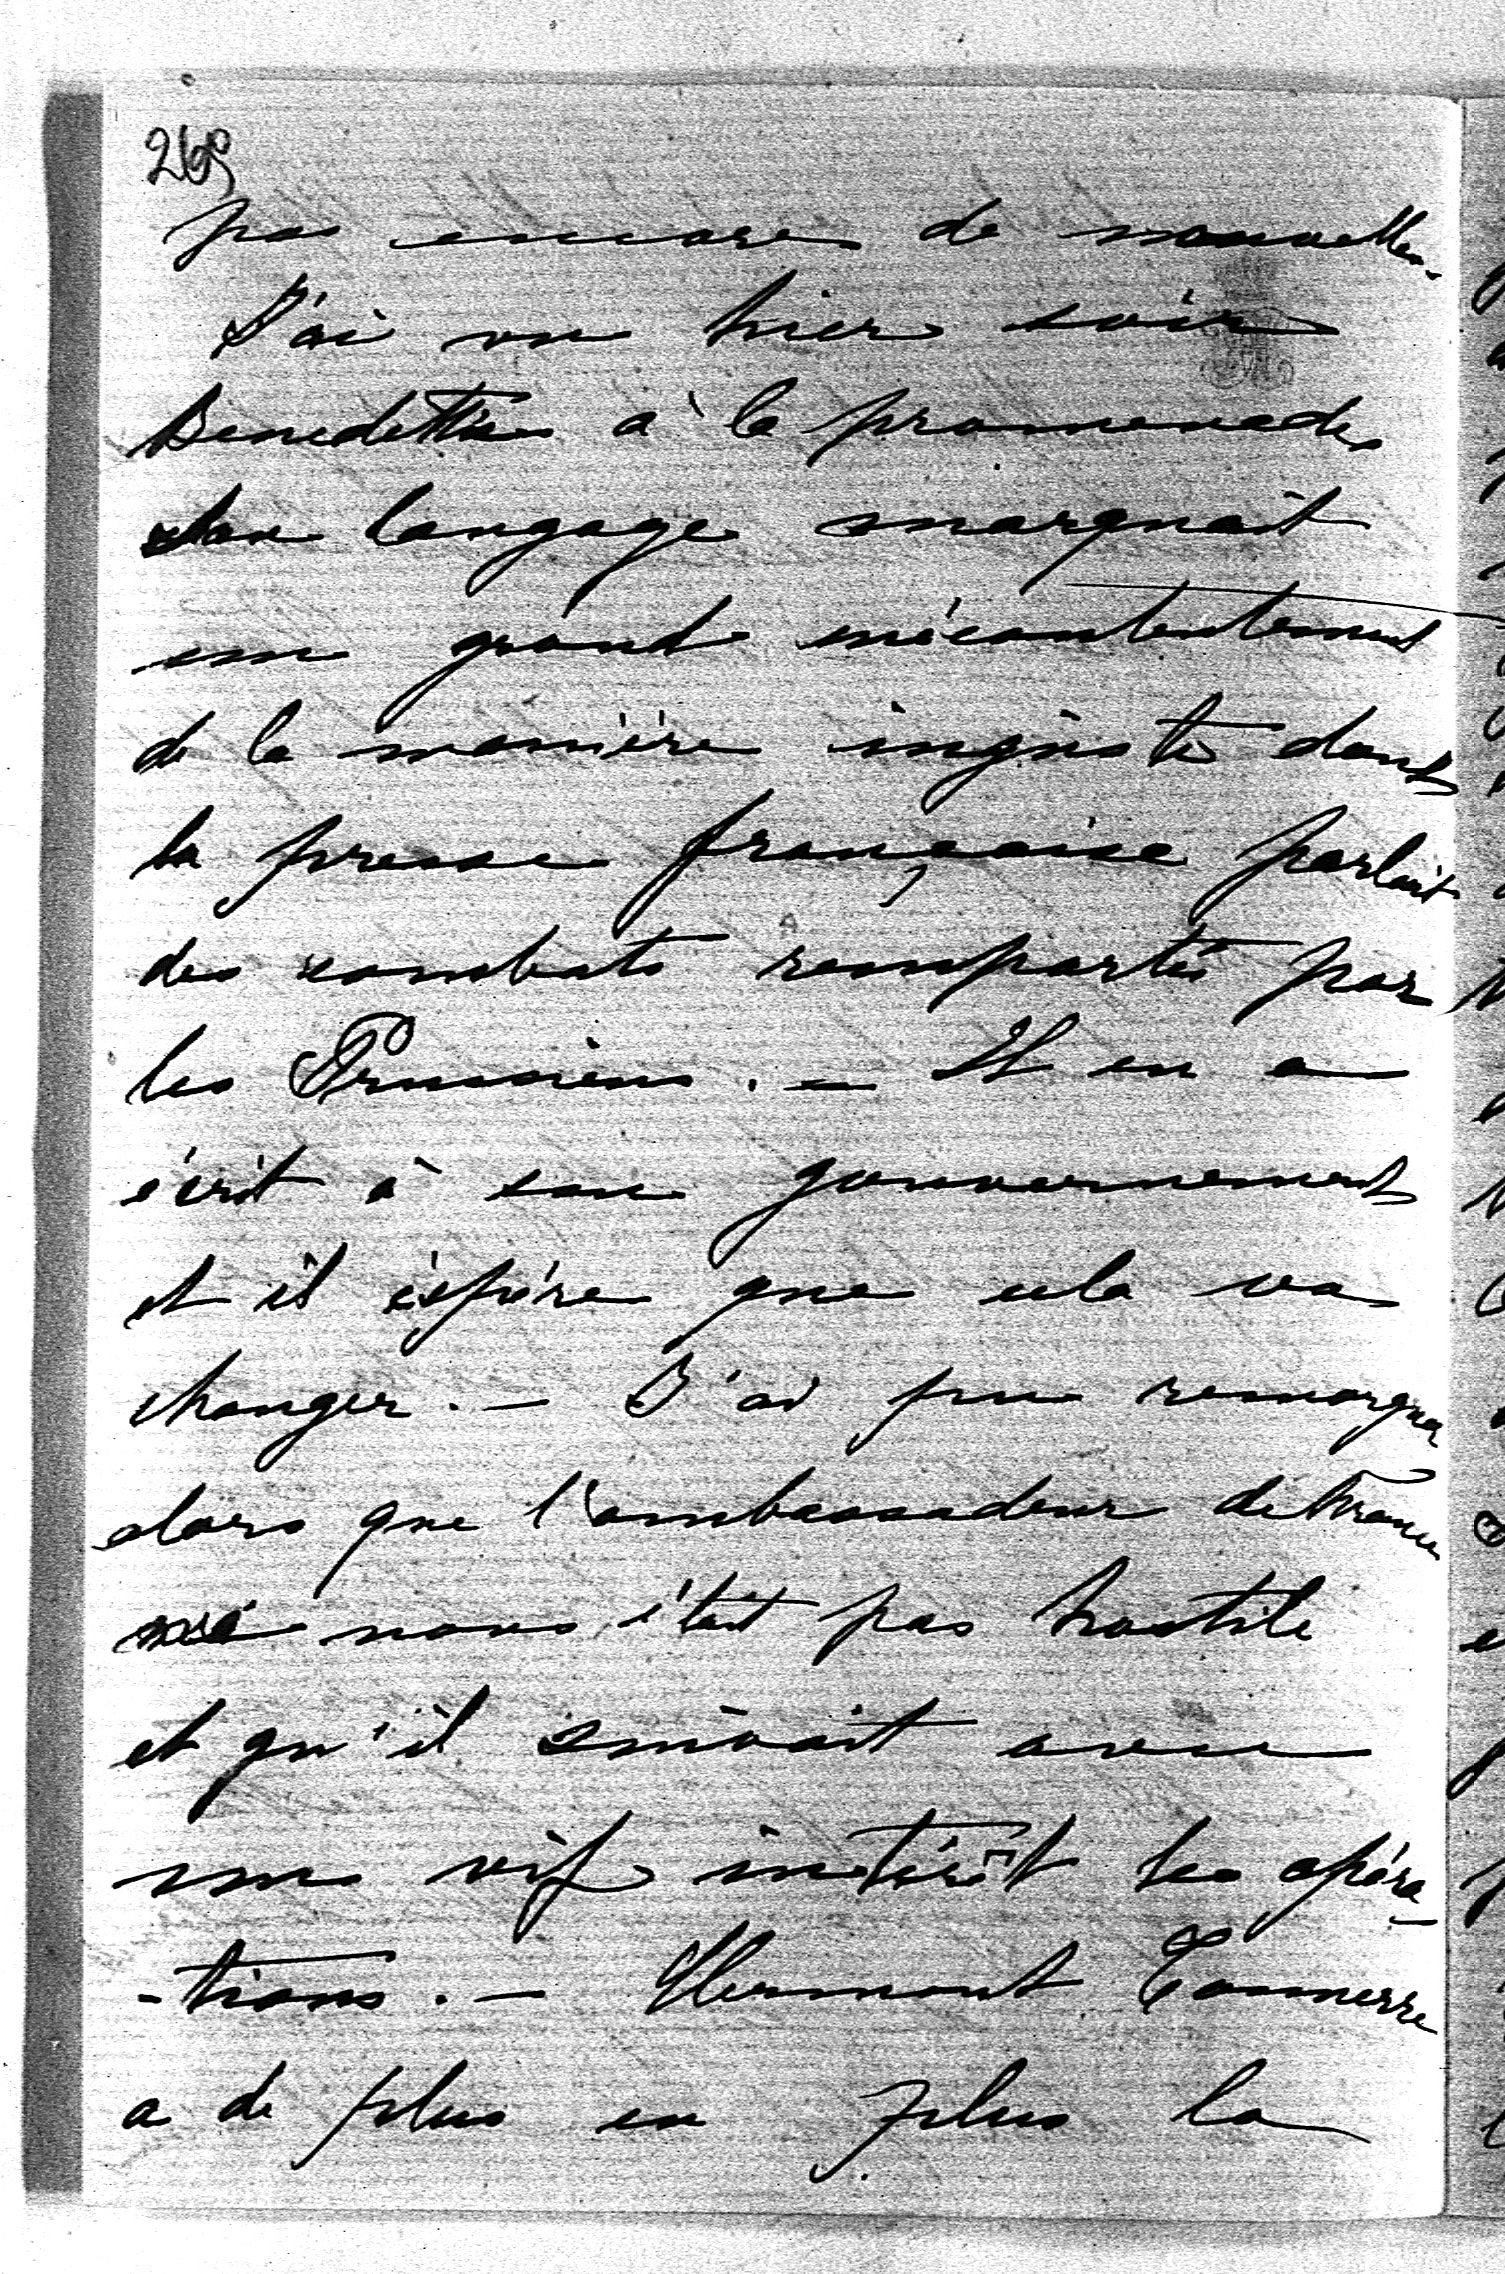 269
pas encore de nouvelles.
J'ai vu hier soir
Benedetti à la promenade
son langage marquait
un grand mécontentement
de la manière injuste dont
la presse française parlait
des combats remportés par
les Prussiens. — Il en a
écrit à son gouvernement
et il éspére que cela va
changer. — J'ai pu remarquer
alors que l'ambassadeur de France
ne nous était pas hostile
et qu'il suivait avec
un vif intérêt les opéra-
-tions. — Clermont Tonnerre
a de plus en plus la